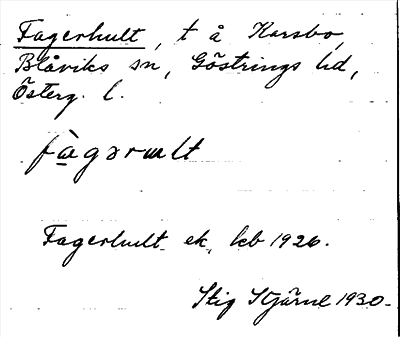 Fagerhult, t å Karsbo,
Blåviks sn, Göstrings hd,
Österg. l.
fàgərɯlt
Fagerhult ek, kb 1926.
Stig Stjärne 1930.